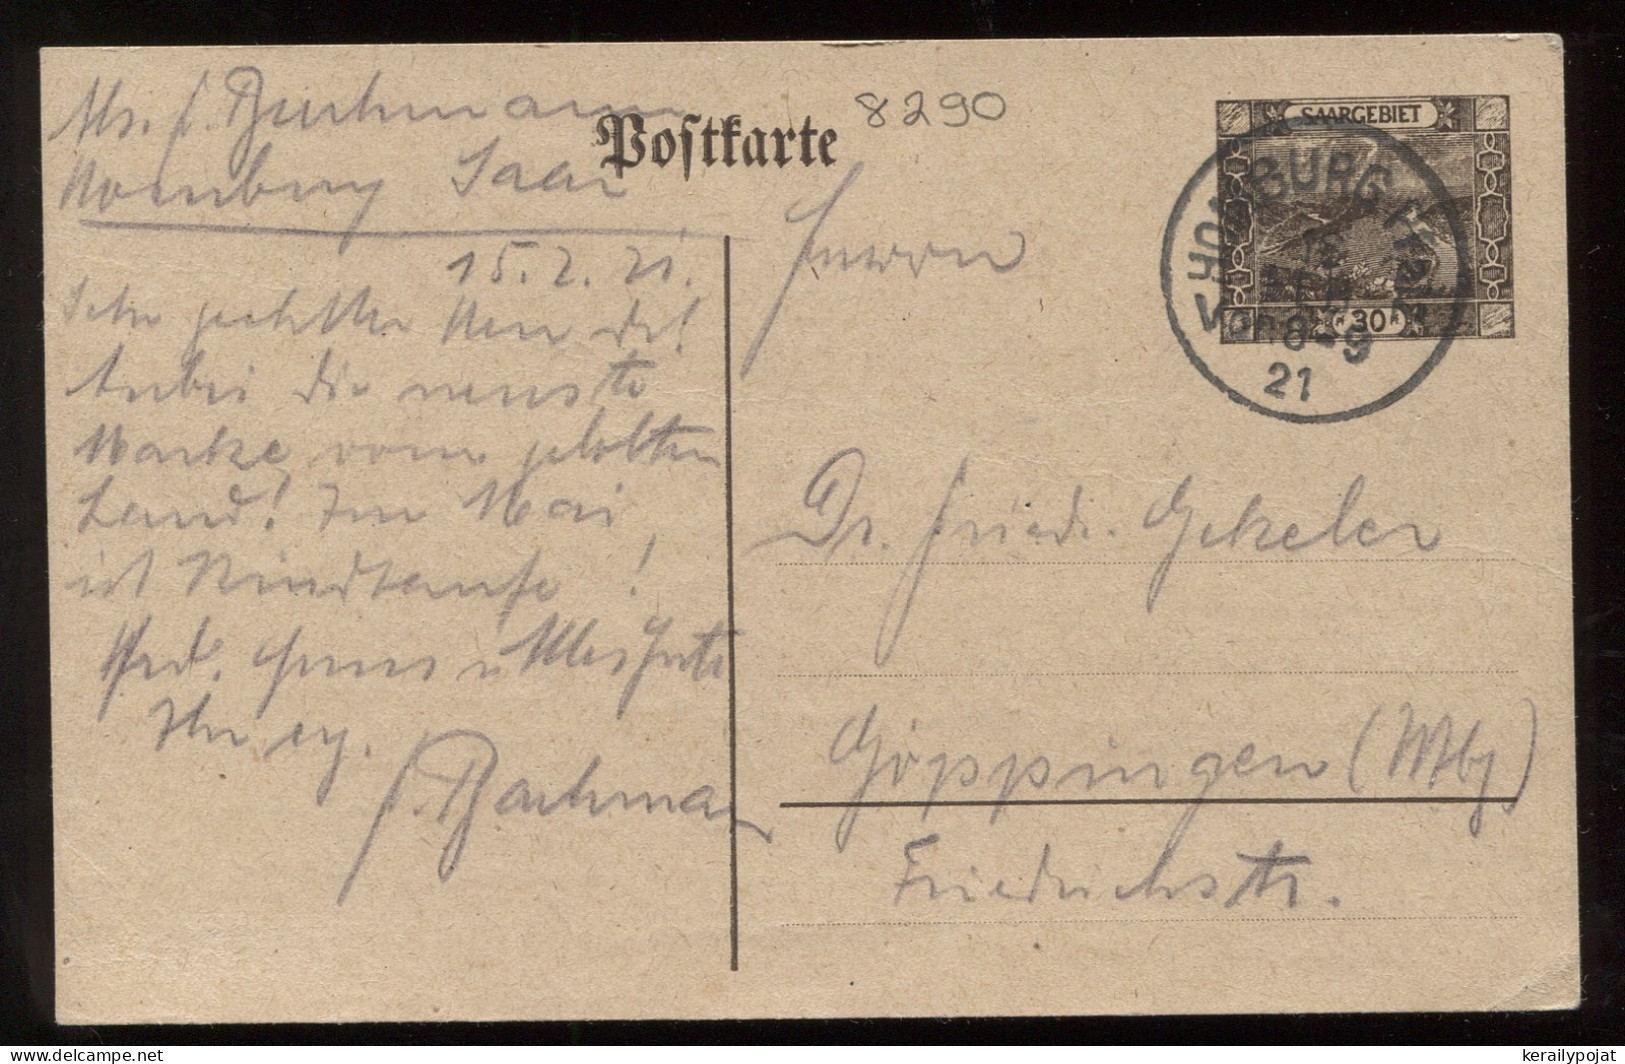 Abs. J. Bachmann
Homburg Saar
15.2.21.
Sehr geehrter Herr Dr!
Anbei die neuste
Marke vom gelobten
Land! Im Mai
ist Kindtaufe!
Grus u Alles Gute
Ihr erg.
J. Bachmann
Postkarte
8290
SAARGEBIET
30
HOMBURG (PFALZ)
FEB
VORM 8-9
21
Herrn
Dr. Friedr. Gekeler
Göppingen (Wbg)
Friedrichstr.
kerailypojat
delcampe.net